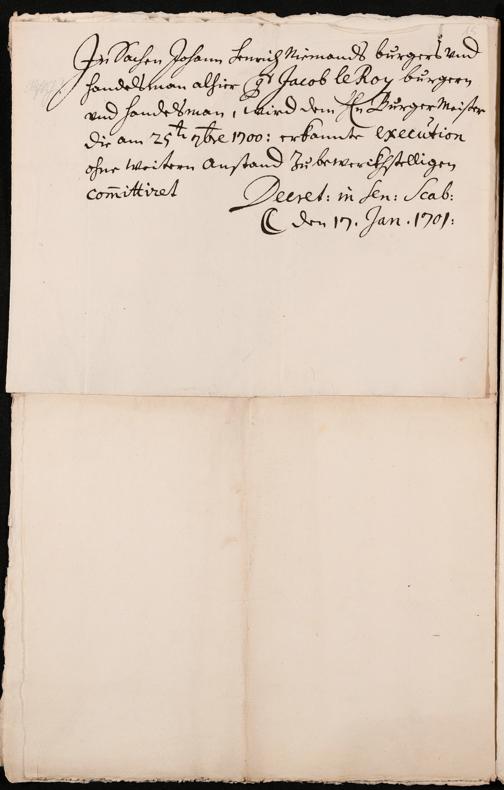 In Sachen Johann Henrich Niemands burgers und
handelsman alhier Jacob le Roy burgern
und handelsman, wird dem Hn BurgerMeister
die am 25t 7bre 1700: erkannte execution
ohne weitern anstand zu bewerckstelligen
com̄ittiret Decret: in Sen: Scab:
den 17. Jan. 1701: